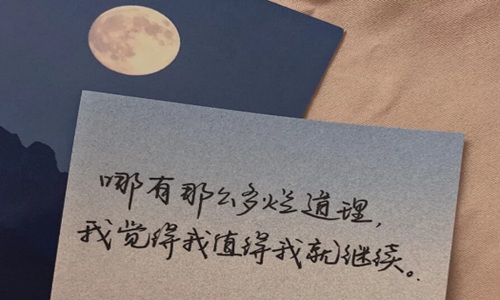 哪有那么多烂道理，
我觉得我值得我就继续。